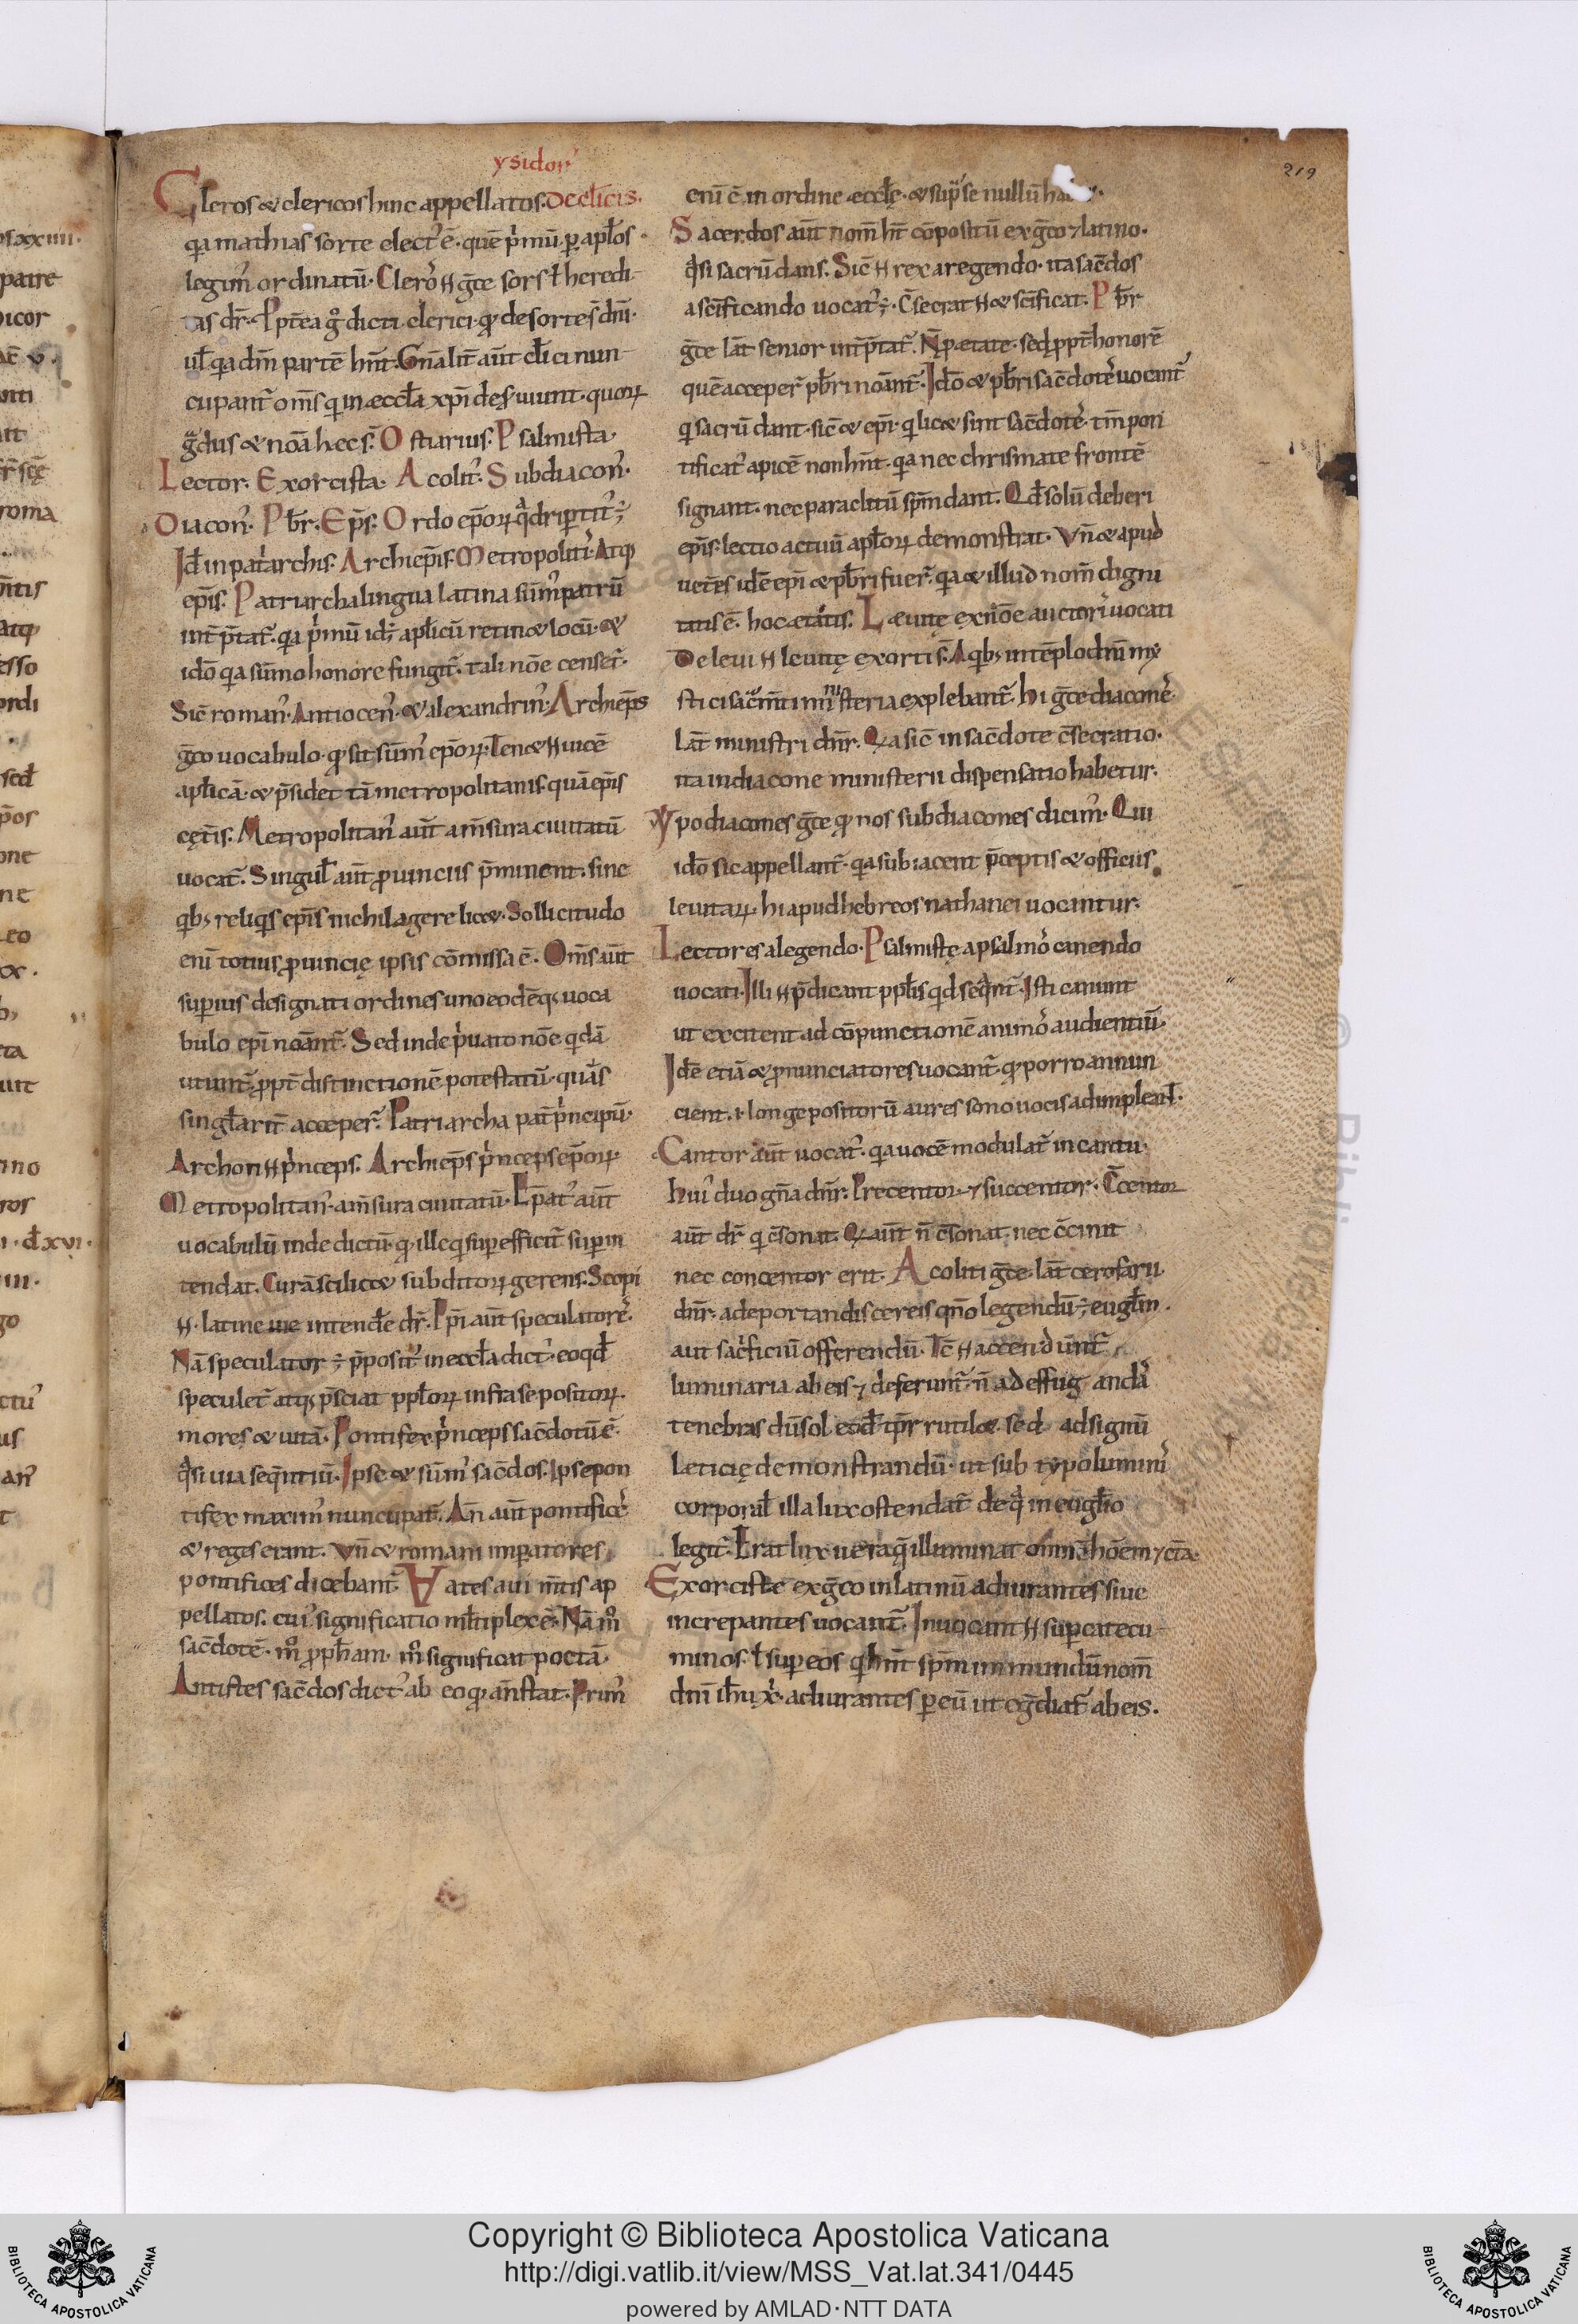 ysidor᾽
Cleros & clericos hinc appellatos. De cl̄icis.
q̇a mathias sorte elect᾽ ē. quē p̍mū ꝑ apl̄os
legim᾽ ordinatū. Clero᾽ .n. g̅ce sors ł heredi-
tas dr̄. Ppt̄ea g̊ dicti clerici. ꝙ de sorte s̄ dn̄i.
ul̄ q̇a dn̄i partē hn̄t. Gn̄alit̄ aūt cl̄ici nun-
cupant᾽ om̄s qui in eccl̄a xp̄i deseruiunt. quoꝝ
g̊dus & noā hec s̄. Ostiarius. Psalmista.
Lector. Exorcista. Acolit᾽. Subdiacon᾽.
Diacon᾽. Pbr̄. Ep̄s. Ordo ep̄oꝝ q̊driꝑtit᾽ ÷
Id̄ in pat̍archis. Archiep̄is. Metropolit̍. Atq;
ep̄is. Patriarcha lingua latina sūm᾽ patrū
int̄p̄tat᾽. q̇a p̍mū id ÷ apl̄icū retin& locū. &
idō q̇a sūmo honore fungit᾽. tali nōe censet᾽.
Sic̄ roman᾽. Antiocen᾽. & alexandrin᾽. Archiep̄s
g̅co uocabulo. ꝙ sit sūm᾽ ep̄oꝝ. Ten& .n. uicē
apl̄icā. & p̄sidet tā metropolitanis quā ep̄is
cęt̄is. Metropolitan᾽ aūt a m̄sura ciuitatū
uocat᾽. Singul̄ aūt ꝓuinciis p̄minent. sine
q̇b; reliq̇s ep̄is nichil agere lic&. Sollicitudo
enī totius ꝓuincię ipsis cōmissa ē. Om̄s aūt
suꝑius designati ordines uno eodēq; uoca
bulo ep̄i noānt᾽. Sed inde p̍uato nōe q̇dā
utunt᾽ ꝓpt̄ distinctionē potestatū. quas
singl̄arit̄ acceper᾽. Patriarcha pat̄ p̍ncipū.
Archon .n. p̍nceps. Archiep̄s p̍nceps ep̄oꝝ.
Metropolitan᾽ a m̄sura ciuitatū. Ep̄at᾽ aūt
uocabulū inde dictū. ꝙ ille q̇ suꝑefficit᾽ suꝑin
tendat. Curā scilic& subditoꝝ gerens. Scopi
.n. latine intend̄e dr̄. Ep̄i aūt speculatore᾽.
Nā speculator ÷ p̄posit᾽ in eccl̄a dict᾽. eo qd̄
speculet᾽ atq; p̄sciat ppl̄oꝝ infra se positoꝝ
mores & uitā. Pontifex p̍nceps sac̄dotū ē.
q̊si uia seq̄ntiū. Ipse & sūm᾽ sac̄dos. Ipse pon
tifex maxim᾽ nuncupat᾽. An̄ aūt pontifice᾽
& reges erant. Vn̄ & romani imꝑatores
pontifices dicebant᾽. Vates a ui m̄tis ap
pellatos. cui᾽ significatio ml̄tiplex ē. Nā m̊
sac̄dotē. m̊ ꝓph̄am. m̊ significat poetā.
Antistes sac̄dos dict᾽ ab eo ꝙ an̄ stat. Prim᾽
219
enī ē in ordine eccl̄ę. & sup̄ se nullū
Sacerdos aūt nom̄ ht̄ cōpositū ex g̅co ⁊ latino.
q̊si sacrū dans. Sic̄ .n. rex a regendo. ita sac̄dos
a sc̄ificando uocat᾽ ÷. C̄secrat .n. & sc̄ificat. Pbr̄
g̅ce lat̄ senior int̄p̄tat᾽. N̄ ꝓ etate. sed ꝓpt̄ honorē
quē acceper᾽ pbr̄i noānt᾽. Idō & pbr̄i sac̄dote᾽ uocant᾽
q̇ sacrū dant. sic̄ & ep̄i. q̇ lic& sint sac̄dote᾽. tm̄ pon
tificat᾽ apicē non hn̄t. q̇a nec chrismate frontē
signant. nec paraclitū sp̄m dant. Qd̄ solū deberi
ep̄is. lectio actuū apl̄oꝝ demonstrat. Vn̄ & apud
uet̄es idē ep̄i & pbr̄i fuer᾽. q̇a & illud nom̄ digni
tatis ē. hoc etatis. Leuitę ex nōe auctori᾽ uocati
De leui .n. leuitę exorti s̄. A q̇b; in tēplo dn̄i my
stici sac̄m̄ti ministeria explebant᾽. Hi g̅ce diacone᾽.
Lat̄ ministri dn̄r. Q̇a sic̄ in sac̄dote c̄secratio.
ita in diacone ministerii dispensatio habetur.
Ypodiacones g̅ce ꝙ nos subdiacones dicim᾽. Qui
idō sic appellant᾽. q̇a subiacent p̄ceptis & officiis
leuitaꝝ. hi apud hebreos nathanei uocantur.
Lectores a legendo. Psalmistę a psalmo᾽ canendo
uocati. Illi .n. p̄dicant ppl̄is q̇d seq̊nt᾽. Isti canunt
ut excitent ad cōpunctionē animo᾽ audientiū.
Idē etiā & ꝓnunciatores uocant᾽. ꝙ porro annun
cient. i. longe positorū aures sono uocis adimpleāt.
Cantor aūt uocat᾽. q̇a uocē modulat᾽ in cantu.
hui᾽ duo gn̄a dn̄r. Precentor. ⁊ succentor. C̄centor
aūt dr̄ q̇ c̄sonat. Q̇ aūt n̄ c̄sonat. nec c̄cinit
nec concentor erit. Acoliti g̅ce. lat̄ ceroferarii
dn̄r. a deportandis cereis qn̄o legendū ÷ eugl̄m.
aut sac̍ficiū offerendū. Tc̄ .n. accendūnt᾽
luminaria ab eis. ⁊ deferunt᾽. n̄ ad effugandā
tenebras dū sol eod̄ tp̄r rutil&. sed ad signū
Leticię demonstrandū. ut sub typo lumini᾽
corporal̄ illa lux ostendat᾽ de q̊ in eugl̄io
legit᾽. Erat lux uera q̄ illuminat omnē hōem ⁊ cet̄a.
Exorciste ex g̅co in latinū adiurantes siue
increpantes uocant᾽. Inuocant .n. suꝑ catecu-
minos. ł suꝑ eos q̇ hn̄t sp̄m inmundū nom̄
dn̄i ih̄u x᾽. adiurantes ꝑ eū ut eg̊diat᾽ ab eis.
Copyright © Biblioteca Apostolica Vaticana
http://digi.vatlib.it/view/MSS_Vat.lat.341/0445
powered by AMLAD·NTT DATA
BIBLIOTECA APOSTOLICA VATICANA
BIBLIOTECA APOSTOLICA VATICANA